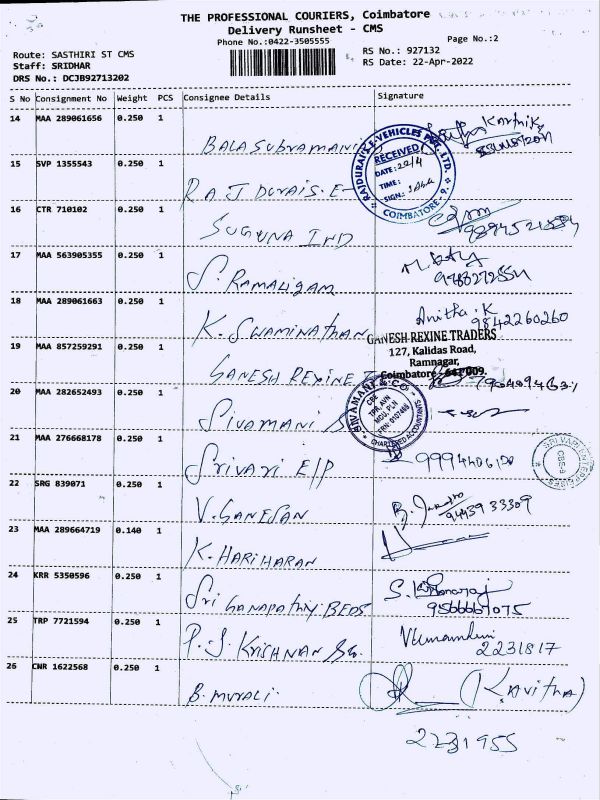 THE PROFESSIONAL COURIERS, Coimbatore
Delivery Runsheet - CMS
Phone No.:0422-3505555
Page No.:2
Route: SASTHIRI ST CMS
Staff: SRIDHAR
DRS No.: DCJB92713202
RS No.: 927132
RS Date: 22-Apr-2022
S No Consignment No Weight PCS Consignee Details Signature
14 MAA 289061656 0.250 1
BALASUBRAMANI
RAJDURAI E-VEHICLES PVT. LTD.
RECEIVED
DATE: 22/4
TIME:
SIGN.:
COIMBATORE - 9.
15 SVP 1355543 0.250 1
RAJ DURAIS. E-
16 CTR 710102 0.250 1
SUGUNA IND
17 MAA 563905355 0.250 1
S. RAMALIGAM
18 MAA 289061663 0.250 1
K. SWAMINATHAN
Anitha.K
9842260260
19 MAA 857259291 0.250 1
GANESH REXINE T
GANESH REXINE TRADERS
127, Kalidas Road,
Ramnagar,
Coimbatore - 641 009.
20 MAA 282652493 0.250 1
Sivamani
SIVAMANI & CO.
CBE
TPR, AVN
MDU, PLN
CHARTERED ACCOUNTANTS
21 MAA 276668178 0.250 1
Srivari E/P
SRI VARI ENTERPRISES
CBE-9
22 SRG 839071 0.250 1
V. GANESAN
94439 33309
23 MAA 289664719 0.140 1
K. HARIHARAN
24 KRR 5350596 0.250 1
Sri GANAPATHY BEDS
25 TRP 7721594 0.250 1
P. S. KRISHNAN
2231817
26 CNR 1622568 0.250 1
B. MURALI
(Kavitha)
2231955